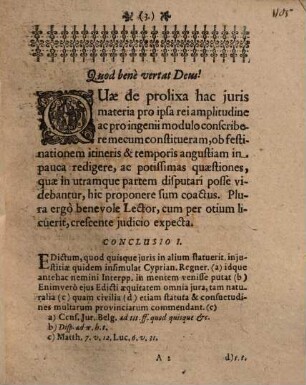 (3.)
Quod benè vertat Deus!
QUæ de prolixa hac juris
materia pro ipsa rei amplitudine
ac pro ingenii modulo conscribe-
re mecum constitueram, ob festi-
nationem itineris & temporis angustiam in
pauca redigere, ac potissimas quæstiones,
quæ in utramque partem disputari posse vi-
debantur, hic proponere sum coactus. Plu-
ra ergò benevole Lector, cum per otium li-
cuerit, crescente judicio expecta.
CONCLUSIO I.
EDictum, quod quisque juris in alium statuerit, inju-
stitiæ quidem insimulat Cyprian. Regner. (a) idque
antehac nemini Interpp. in mentem venisse putat (b)
Enimverò ejus Edicti æquitatem omnia jura, tam natu-
ralia (c) quam civilia (d) etiam statuta & consuetudi-
nes multarum provinciarum commendant. (e)
a) Cens. Jur. Belg. ad tit. ff. quod quisque &c.
b) Disp. ad π. h. t.
c) Matth. 7. v. 12. Luc. 6. v. 31.
A 2 d) l. 1.